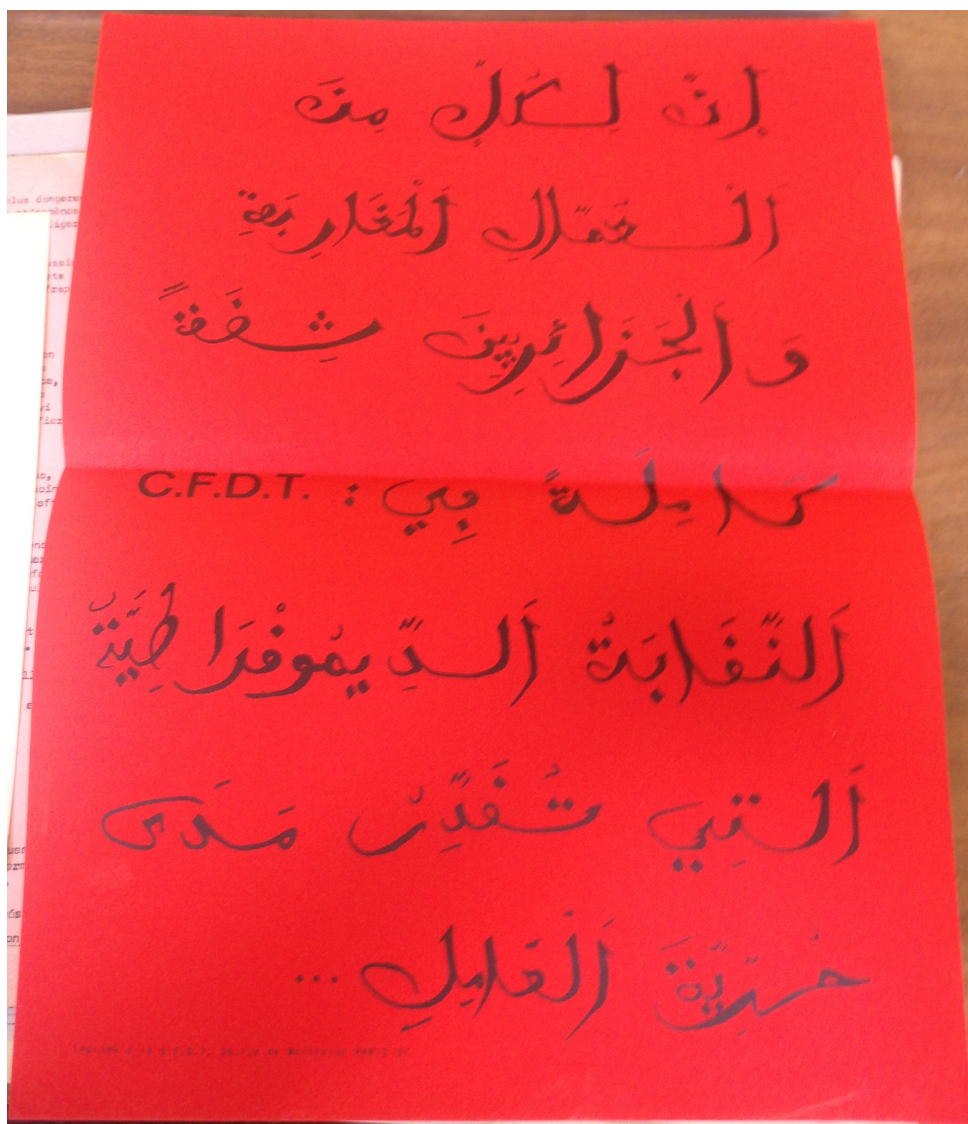 إِنَّ لِكُلٍّ مِنَ
اَلْعُمَّالِ اَلْمَغَارِبَةِ
وَ اَلْجَزَائِرِيِّينَ ثِقَةً
كَامِلَةً فِي : C.F.D.T.
اَلنِّقَابَةُ اَلدِّيمُوقْرَاطِيَّةُ
اَلَّتِي تُقَدِّرُ مَدَى
حُرِّيَّةَ اَلْعَامِلِ ...